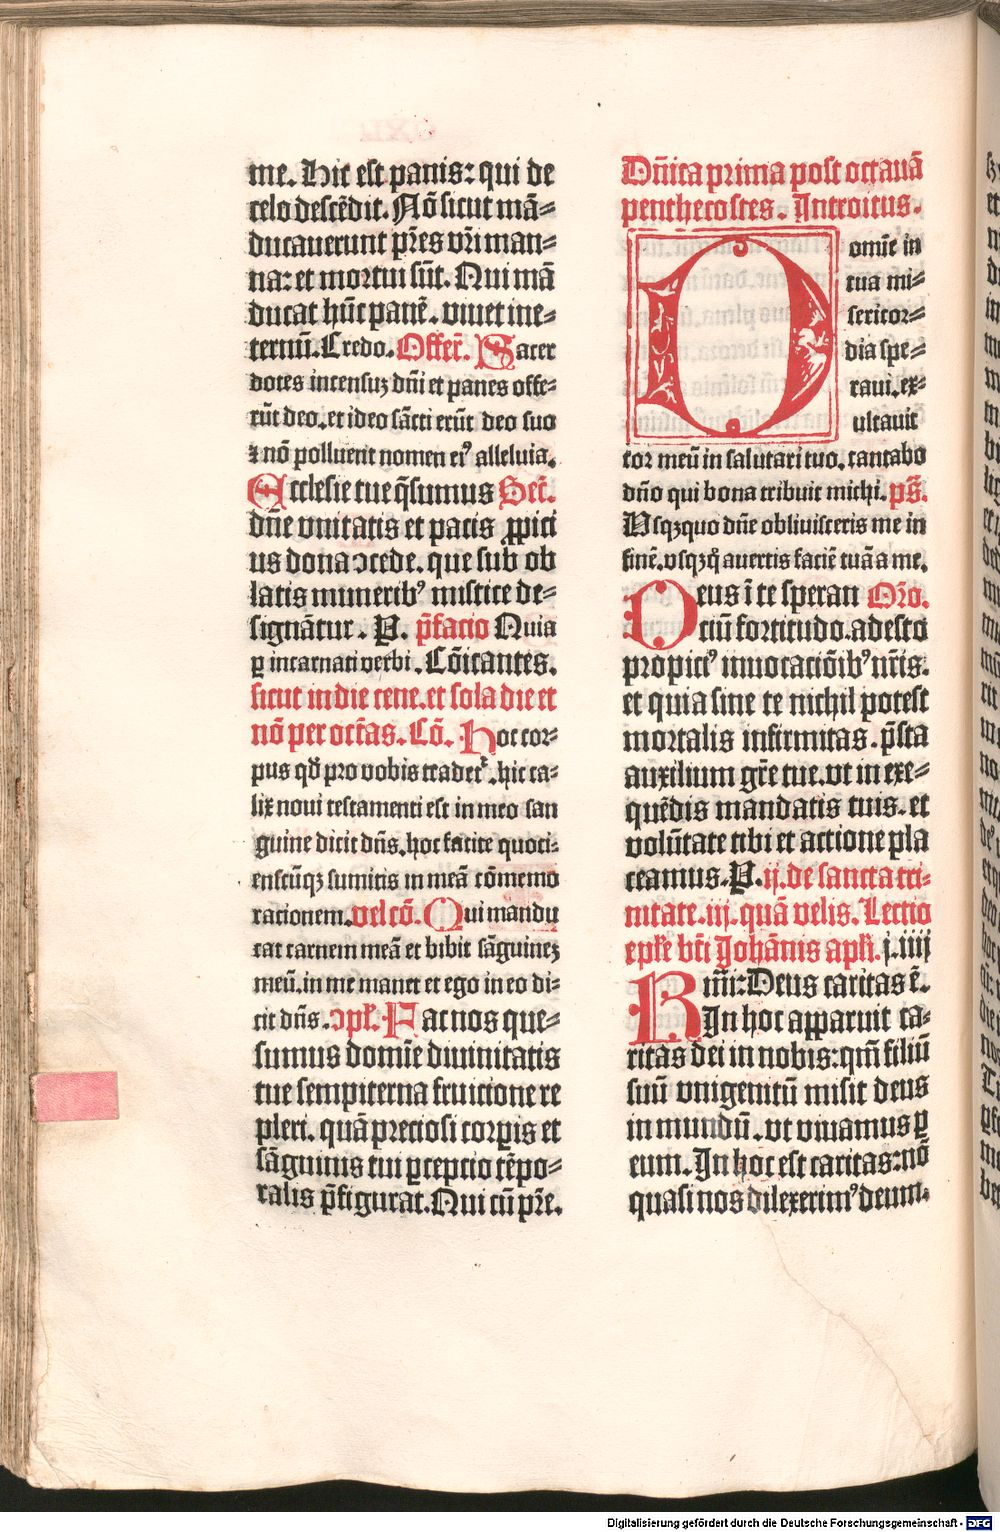 me. Hic est panis: qui de
celo descēdit. Nō sicut mā⸗
ducauerunt pr̄es vr̄i man⸗
na: et mortui sūt. Qui mā
ducat hūc panē. viuet ine⸗
ternū. Credo. Offer̄. Sacer
dotes incensuꝫ dn̄i et panes offe⸗
rūt deo. et ideo sācti erūt deo suo
ꝛ nō polluent nomen eiꝰ alleluia.
Ecclesie tue q̄sumus Sec̄.
dn̄e vnitatis et pacis ꝓpici
us dona ↄcede. que sub ob
latis muneribꝰ mistice de⸗
signātur. P. p̄facio Quia
ꝑ incarnati verbi. Cōicantes.
sicut in die cene. et sola die et
nō per octas. Cō. Hoc cor⸗
pus qd̄ pro vobis tradet᷑. hic ca⸗
lix noui testamenti est in meo san
guine dicit dn̄s. hoc facite quoci⸗
enscūqꝫ sumitis in meā cōmemo
racionem. vel cō. Qui mandu
cat carnem meā et bibit sāguineꝫ
meū. in me manet et ego in eo di⸗
cit dn̄s. ↄpl̄. Fac nos que⸗
sumus domīe diuinitatis
tue sempiterna fruicione re
pleri. quā preciosi corꝑis et
sāguinis tui ꝑcepcio tēpo⸗
ralis p̄figurat. Qui cū pr̄e.
Dn̄ica prima post octauā
penthecostes. Introitus.
Domīe in
tua mi⸗
sericor⸗
dia spe⸗
raui. ex⸗
ultauit
cor meū in salutari tuo. cantabo
dn̄o qui bona tribuit michi. ps̄.
Vsqꝫquo dn̄e obliuisceris me in
finē. vsqꝫq̄ auertis faciē tuā a me.
Deus ī te speran Oro.
ciū fortitudo. adesto
propicꝰ inuocaciōibꝰ nr̄is.
et quia sine te nichil potest
mortalis infirmitas. p̄sta
auxilium gr̄e tue. vt in exe⸗
quēdis mandatis tuis. et
volūtate tibi et actione pla
ceamus. P. ij. de sancta tri⸗
nitate. iij. quā velis. Lectio
epl̄e bt̄i Johānis apl̄i. j. iiij
Rm̄i: Deus caritas ē.
In hoc apparuit ca⸗
ritas dei in nobis: qm̄ filiū
suū vnigenitū misit deus
in mundū. vt viuamus ꝑ
eum. In hoc est caritas: nō
quasi nos dilexerimꝰ deum.
Digitalisierung gefördert durch die Deutsche Forschungsgemeinschaft - DFG